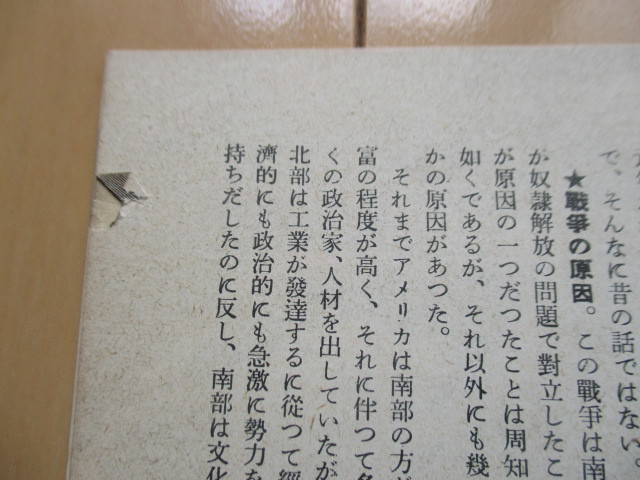 で、そんなに昔の話ではない。
★戰爭の原因。この戰爭は南
が奴隷解放の問題で對立したこ
が原因の一つだつたことは周知
如くであるが、それ以外にも幾
かの原因があつた。
それまでアメリカは南部の方が
富の程度が高く、それに伴つて多
くの政治家、人材を出していたが
北部は工業が發達するに從つて經
濟的にも政治的にも急激に勢力を
持ちだしたのに反し、南部は文化